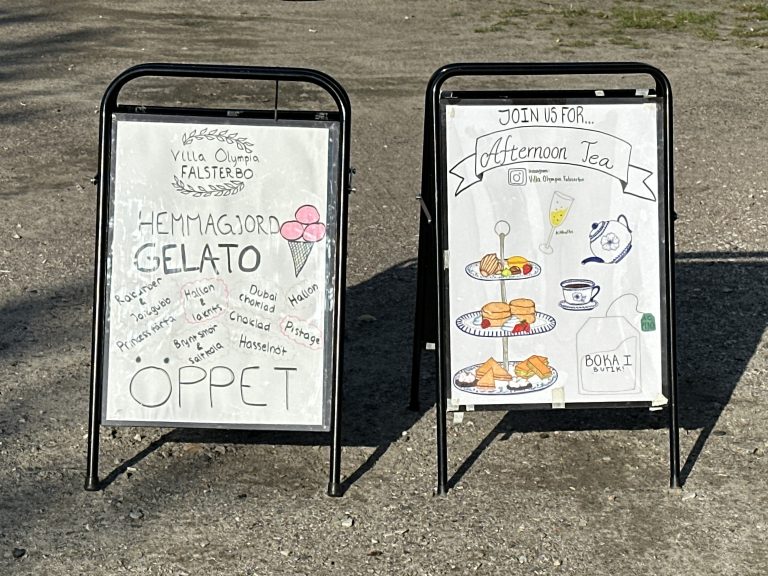 Villa Olympia
FALSTERBO
HEMMAGJORD
GELATO
Rabarber
&
Jordgubb
Prinsesstårta
Hallon
&
lakrits
Brynt smör
&
saltkola
Dubai
choklad
Choklad
Hasselnöt
Hallon
Pistage
ÖPPET
JOIN US FOR...
Afternoon Tea
Instagram:
Villa Olympia Falsterbo
BOKA I
BUTIK!